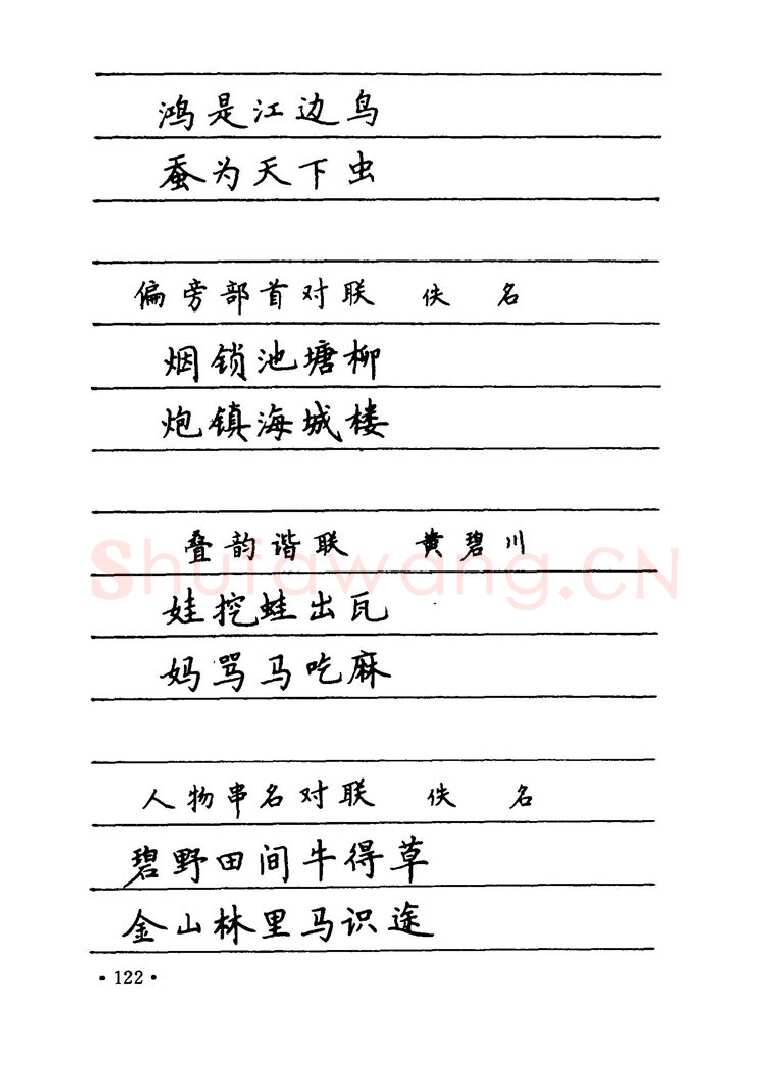 鸿是江边鸟
蚕为天下虫
偏旁部首对联 佚 名
烟锁池塘柳
炮镇海城楼
叠韵谐联 黄碧川
Shufawang.CN
娃挖蛙出瓦
妈骂马吃麻
人物串名对联 佚 名
碧野田间牛得草
金山林里马识途
·122·